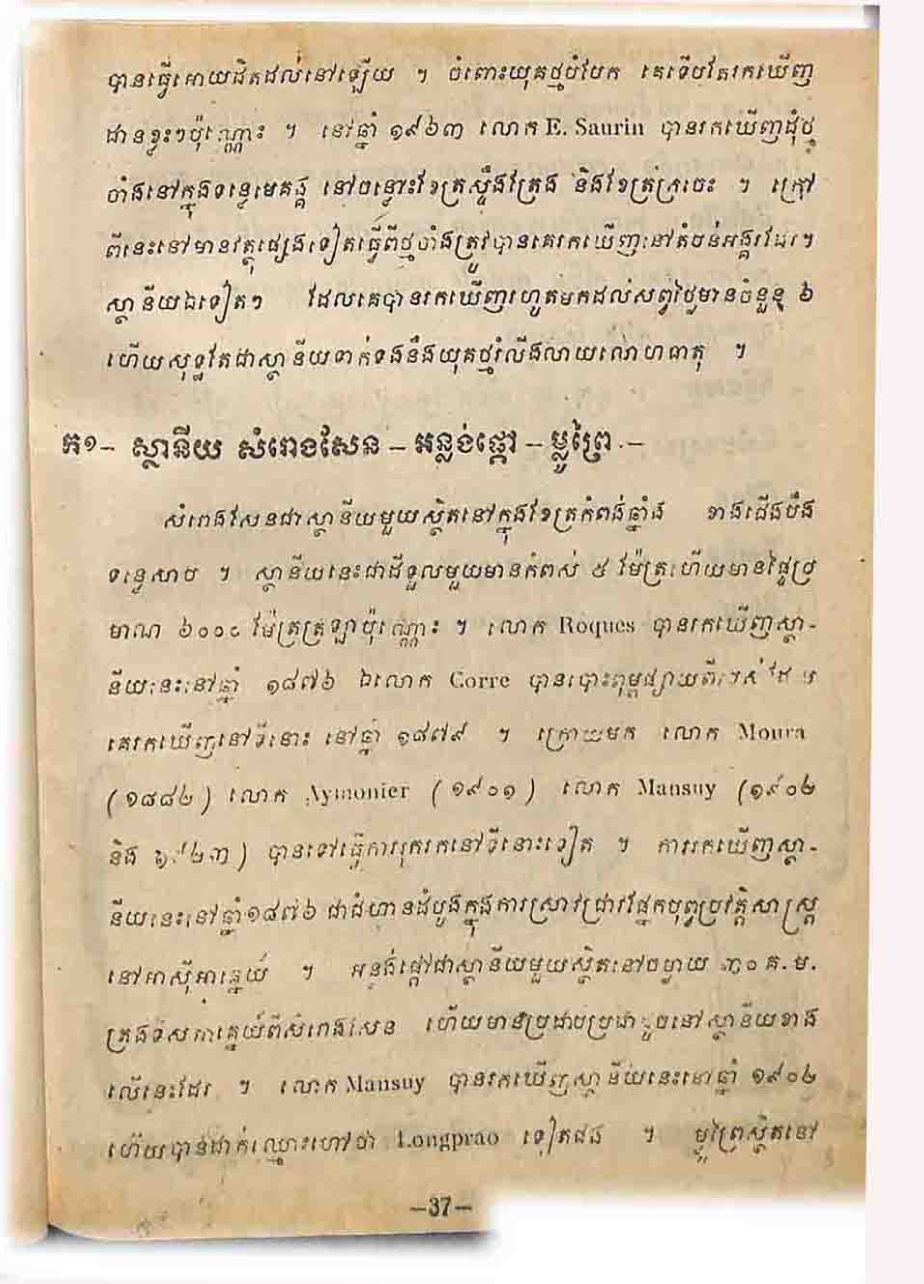 បានធ្វើអោយដិតដល់នៅឡើយ ។ ចំពោះយុគថ្មបំបែក គេទើបតែរកឃើញ
ដានខ្លះៗប៉ុណ្ណោះ ។ នៅឆ្នាំ ១៩៦៣ លោក E. Saurin បានរកឃើញដុំថ្ម
ចាំងនៅក្នុងទន្លេមេគង្គ នៅចន្លោះខែត្រស្ទឹងត្រែង និងខែត្រក្រចេះ ។ ក្រៅ
ពីនេះនៅមានវត្ថុផ្សេងទៀតធ្វើពីថ្មចាំងត្រូវបានគេរកឃើញនៅតំបន់អង្គរដែរ។
ស្ថានីយឯទៀតៗ ដែលគេបានរកឃើញរហូតមកដល់សព្វថ្ងៃមានចំនួន ៦
ហើយសុទ្ធតែជាស្ថានីយទាក់ទងនឹងយុគថ្មរំលីងលាយលោហធាតុ ។
ក១- ស្ថានីយ សំរោងសែន – អន្លង់ផ្តៅ – ម្លូព្រៃ .–
សំរោងសែនជាស្ថានីយមួយស្ថិតនៅក្នុងខែត្រកំពង់ឆ្នាំង ខាងជើងបឹង
ទន្លេសាប ។ ស្ថានីយនេះជាដីទួលមួយមានកំពស់ ៥ ម៉ែត្រហើយមានផ្ទៃប្រ
មាណ ៦០០០ ម៉ែត្រត្រឡាប៉ុណ្ណោះ ។ លោក Roques បានរកឃើញស្ថា-
នីយនេះនៅឆ្នាំ ១៨៧៦ ឯលោក Corre បានបោះពុម្ពផ្សាយពី ដែល
គេរកឃើញនៅទីនោះ នៅឆ្នាំ ១៨៧៩ ។ ក្រោយមក លោក Moura
(១៨៨២) លោក Aymonier (១៩០១) លោក Mansuy (១៩០២
និង ១៩២៣) បានទៅធ្វើការរុករកនៅទីនោះទៀត ។ ការរកឃើញស្ថា-
នីយនេះនៅឆ្នាំ១៨៧៦ ជាជំហានដំបូងក្នុងការស្រាវជ្រាវផ្នែកបុព្វប្រវត្តិសាស្ត្រ
នៅអាស៊ីអាគ្នេយ៍ ។ អន្លង់ផ្តៅជាស្ថានីយមួយស្ថិតនៅចម្ងាយ ៣០ គ.ម.
ត្រង់ទិសអាគ្នេយ៍ពីសំរោងសែន ហើយមានប្រដាប់ប្រដាដូចនៅស្ថានីយខាង
លើនេះដែរ ។ លោក Mansuy បានរកឃើញស្ថានីយនេះនៅឆ្នាំ ១៩០២
ហើយបានដាក់ឈ្មោះហៅថា Longprao ទៀតផង ។ ម្លូព្រៃស្ថិតនៅ
–37–